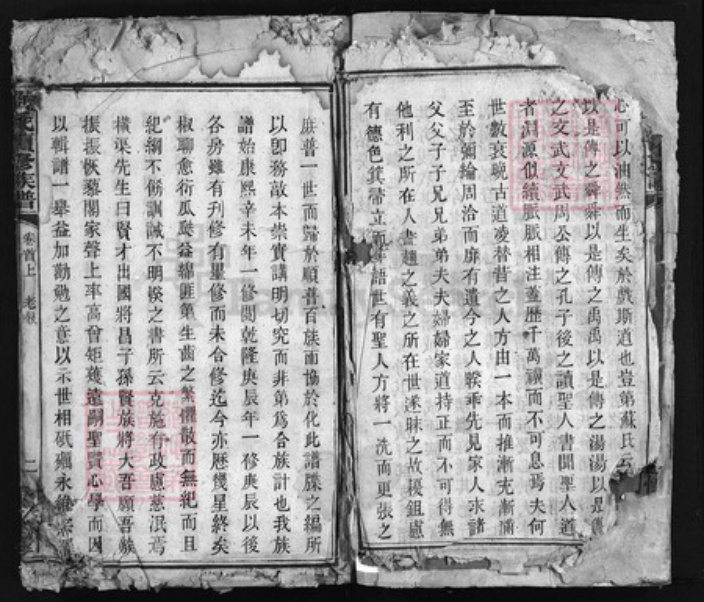 心可以油然而生矣於戲斯道也豈第蘇氏云
以是傳之舜舜以是傳之禹禹以是傳之湯湯以是傳
之文武文武周公傳之孔子後之讀聖人書聞聖人道
者淵源似續脈脈相注蓋歷千萬禩而不可息焉夫何
世數衰晚古道凌替昔之人方由一本而推漸充漸滿
至於彌綸周洽而靡有遺今之人睽乖先見家人求諸
父父子子兄兄弟弟夫夫婦婦家道持正而不可得無
他利之所在人盡趨之義之所在世遂昧之故耰鉏慮
有德色箕帚立而誶語世有聖人方將一洗而更張之
庶普一世而歸於順普百族而協於化此譜牒之編所
以卽務敁本崇實講明切究而非第爲合族計也我族
譜始康熙辛未年一修閱乾隆庚辰年一修庚辰以後
各房雖有刋修有畧修而未合修迄今亦歷幾星終矣
椒聊愈衍瓜瓞益綿匪第生齒之繁懼散而無紀而且
紀綱不飭訓誡不明揆之書所云克施有政慮慈泯焉
橫渠先生曰賢才出國將昌子孫賢族將大吾願吾族
振振恢藐閣家聲上率高曾矩矱遠嗣聖賢心學而因
以輯譜一舉益加勸勉之意以示世相砥礪永
修族譜
卷首上
老敘
二